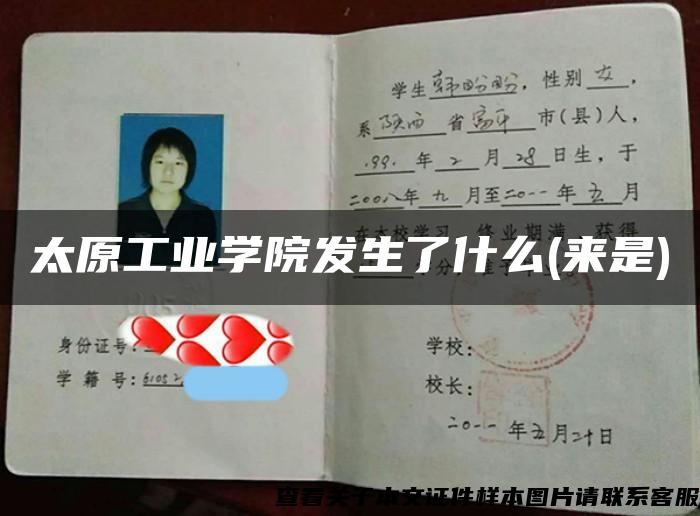 学生韩盼盼，性别女，
系陕西省富平市(县)人，
1991年2月28日生，于
二00八年九月至二0一一年五月
在本校学习，终业期满，获得
太原工业学院发生了什么(来是)
学分，准予
身份证号:
学 籍 号: 61052
学校:
校长:
二0一一年五月二十日
查看关于本文证件样本图片请联系客服